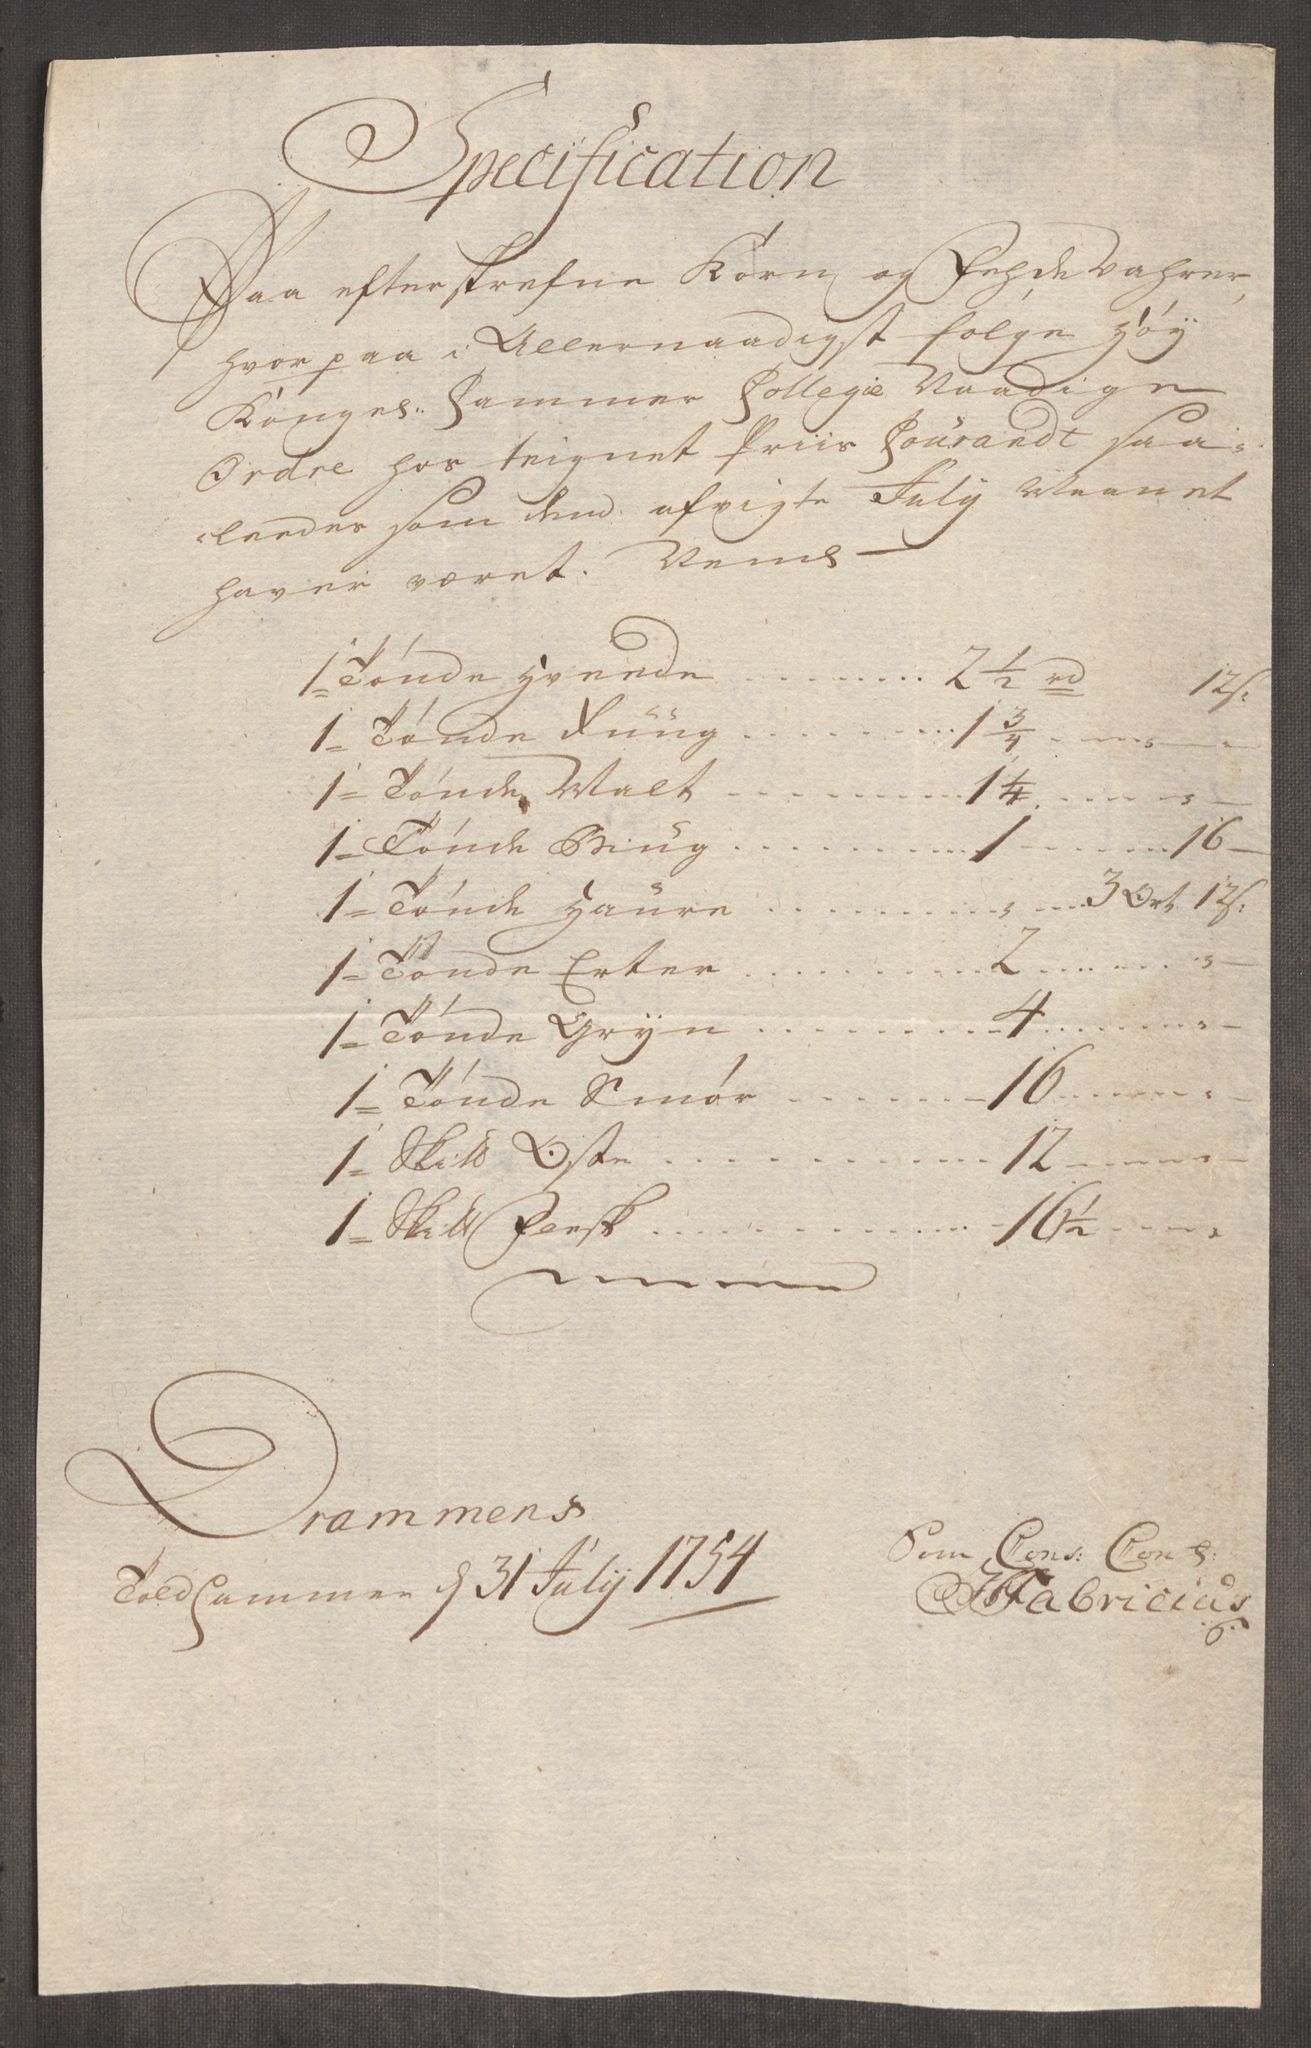 Specification
Paa efterskrefne Korn og Fehde Vahrer,
hvorpaa i Allernaadigst følge Høÿ
Konges: Cammer Collegie Naadige
Ordre her teignet Priis Couran̄t saa-
leedes som dend afvigte July Maanet
haver været. Neml
1 = Tønde Hveede ........ 2 1/2 rd 12s:
1 = Tønde Rüüg ........ 1 3/4 ..... -
1 = Tønde Malt ........ 1 1/4 ..... -
1 = Tønde Biüg ........ 1 ..... 16 -
1 = Tønde Haure ........ " ... 3 Ort 12s:
1 = Tønde Erter ........ 2 ..... " -
1 = Tønde Grÿn ........ 4 ..... " -
1 = Tønde Smør ........ 16 ..... " -
1 = Skill Oste ........ 12 ..... " -
1 = Skill Flesk ........ 16 1/2 ..... "
Drammens
Told Cammer d 31 Julÿ 1754
Som Cons: Cont:
Fabricius